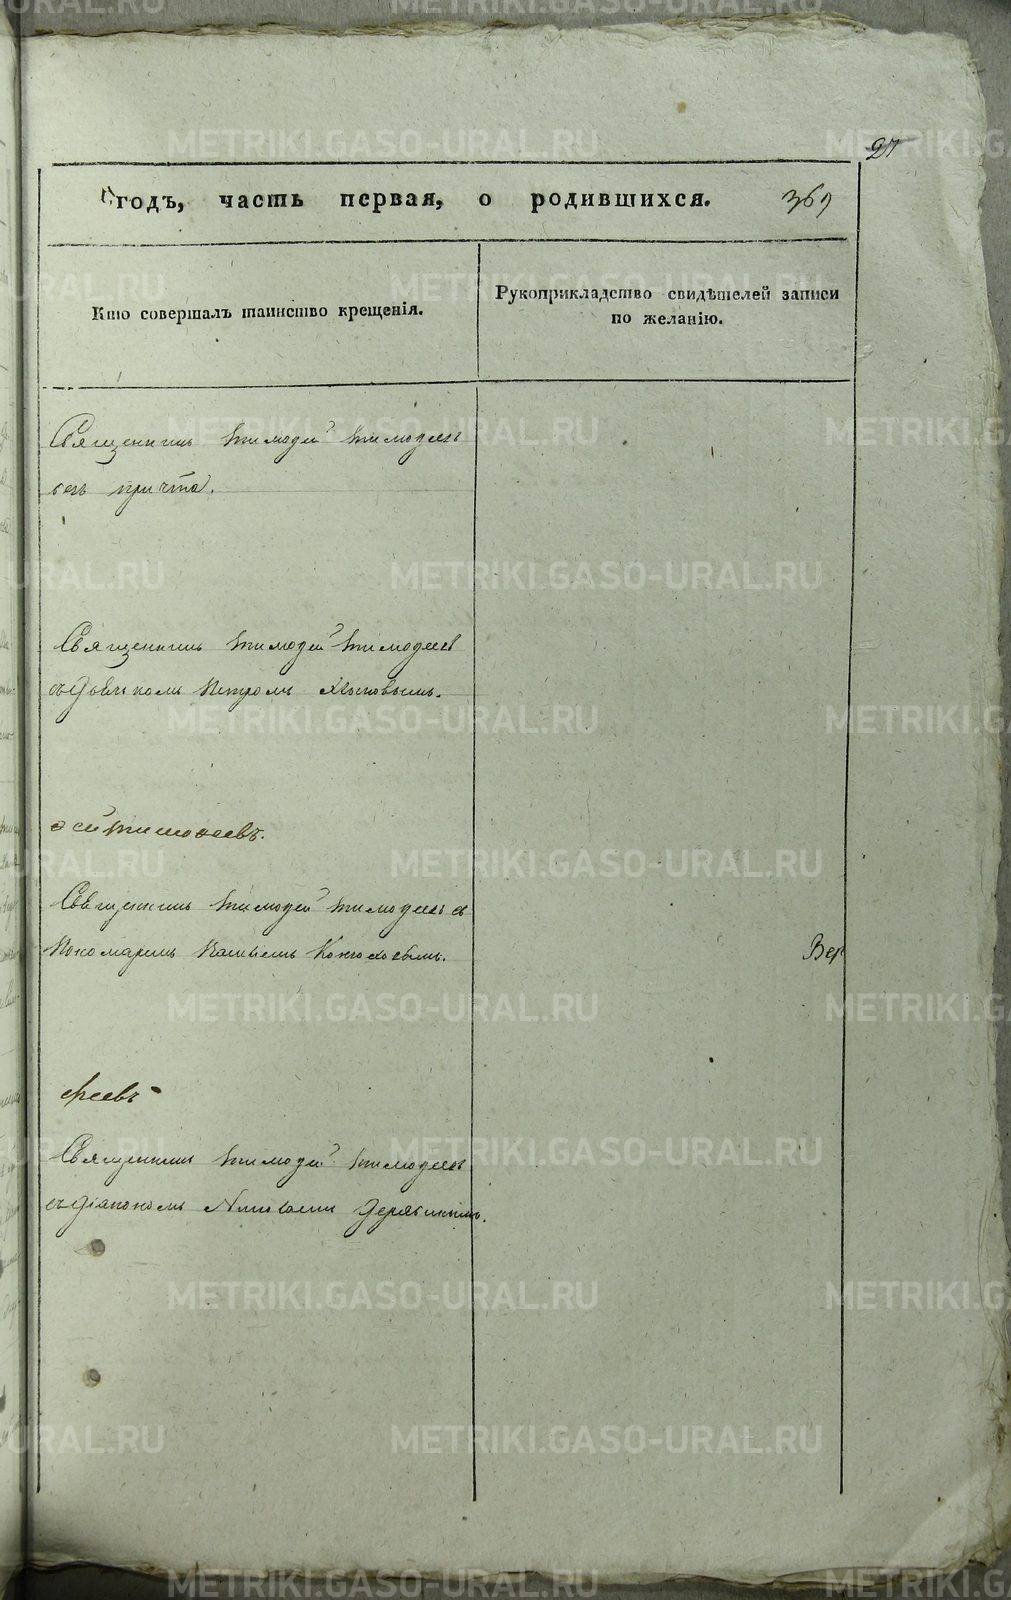 27
годъ, часть первая, о родившихся. 369
Кто совершалъ таинство крещенія.
Рукоприкладство свидѣтелей записи
по желанію.
Священникъ Тимофей Тимофеевъ
безъ причта.
Священникъ Тимофей Тимофеев
съ Дьячкомъ Петромъ
ѳей Тимоѳеевъ.
Священникъ Тимофей Тимофеевъ с
Пономаремъ
Вер
ѳеевъ
Священникъ Тимофей Тимофеевъ
съ Діакономъ Николаемъ Дерябинымъ.
METRIKI.GASO-URAL.RU